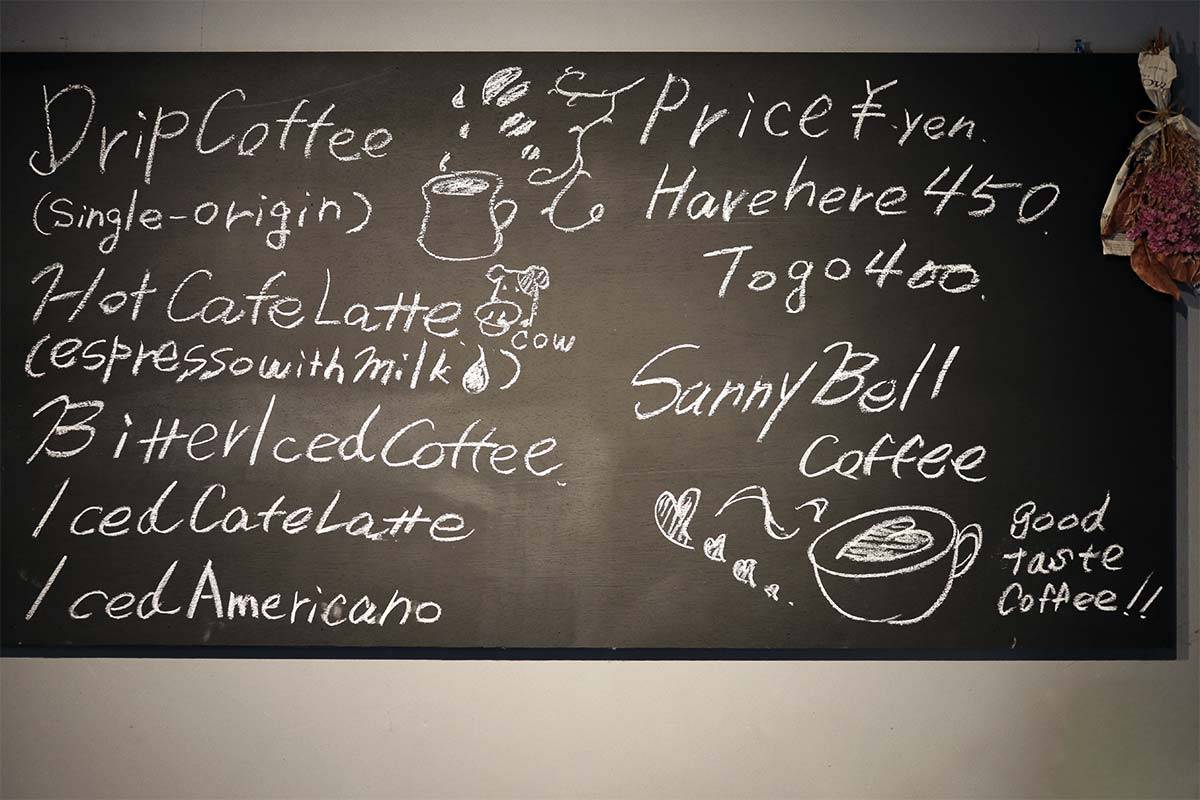 Drip Coffee
(single-origin)
Hot Cafe Latte
cow
(espresso with milk)
Bitter Iced Coffee
Iced Cafe Latte
Iced Americano
Price ¥-yen.
Have here 450.
To go 400.
Sunny Bell
Coffee
good
taste
coffee!!